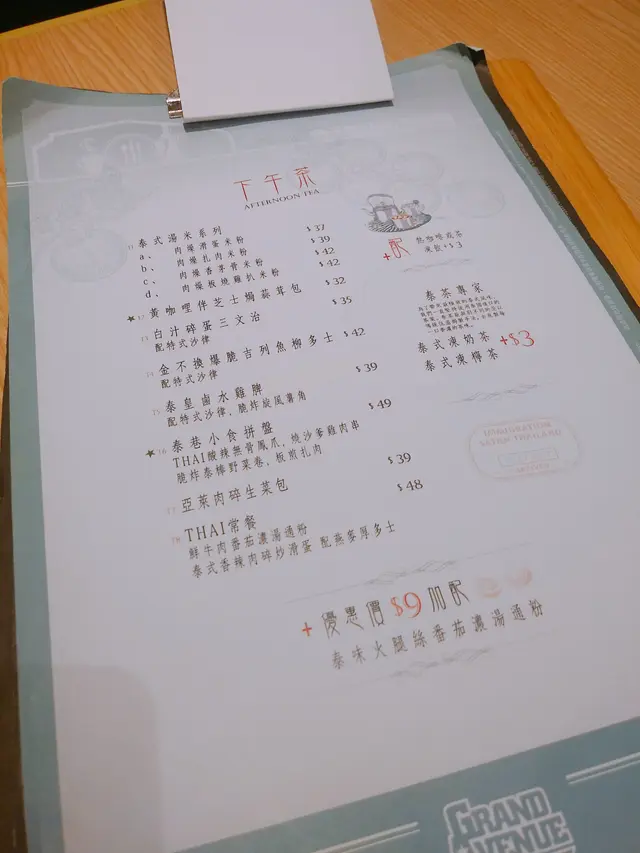 下午茶
AFTERNOON TEA
11 泰式湯米系列
a、 肉燥滑蛋米粉 $37
b、 肉燥扎肉米粉 $39
c、 肉燥香茅骨米粉 $42
d、 肉燥板燒雞扒米粉 $42
★12 黃咖哩伴芝士焗蒜茸包 $32
13 白汁碎蛋三文治 $35
配特式沙律
14 金不換爆脆吉列魚柳多士 $42
配特式沙律
15 泰皇鹵水雞髀 $39
配特式沙律，脆炸旋風薯角
★16 泰巷小食拼盤 $49
THAI酸辣無骨鳳爪，燒沙爹雞肉串
脆炸泰條野菜卷，板燒扎肉
17 亞菜肉碎生菜包 $39
18 THAI常餐 $48
鮮牛肉番茄濃湯通粉
泰式香辣肉碎炒滑蛋 配燕麥厚多士
+配 熱咖啡或茶
凍飲+$3
泰茶專家
泰式凍奶茶 +$3
泰式凍檸茶
IMMIGRATION
THAILAND
+ 優惠價 $9 加配
泰味火腿絲番茄濃湯通粉
GRAND
AVENUE